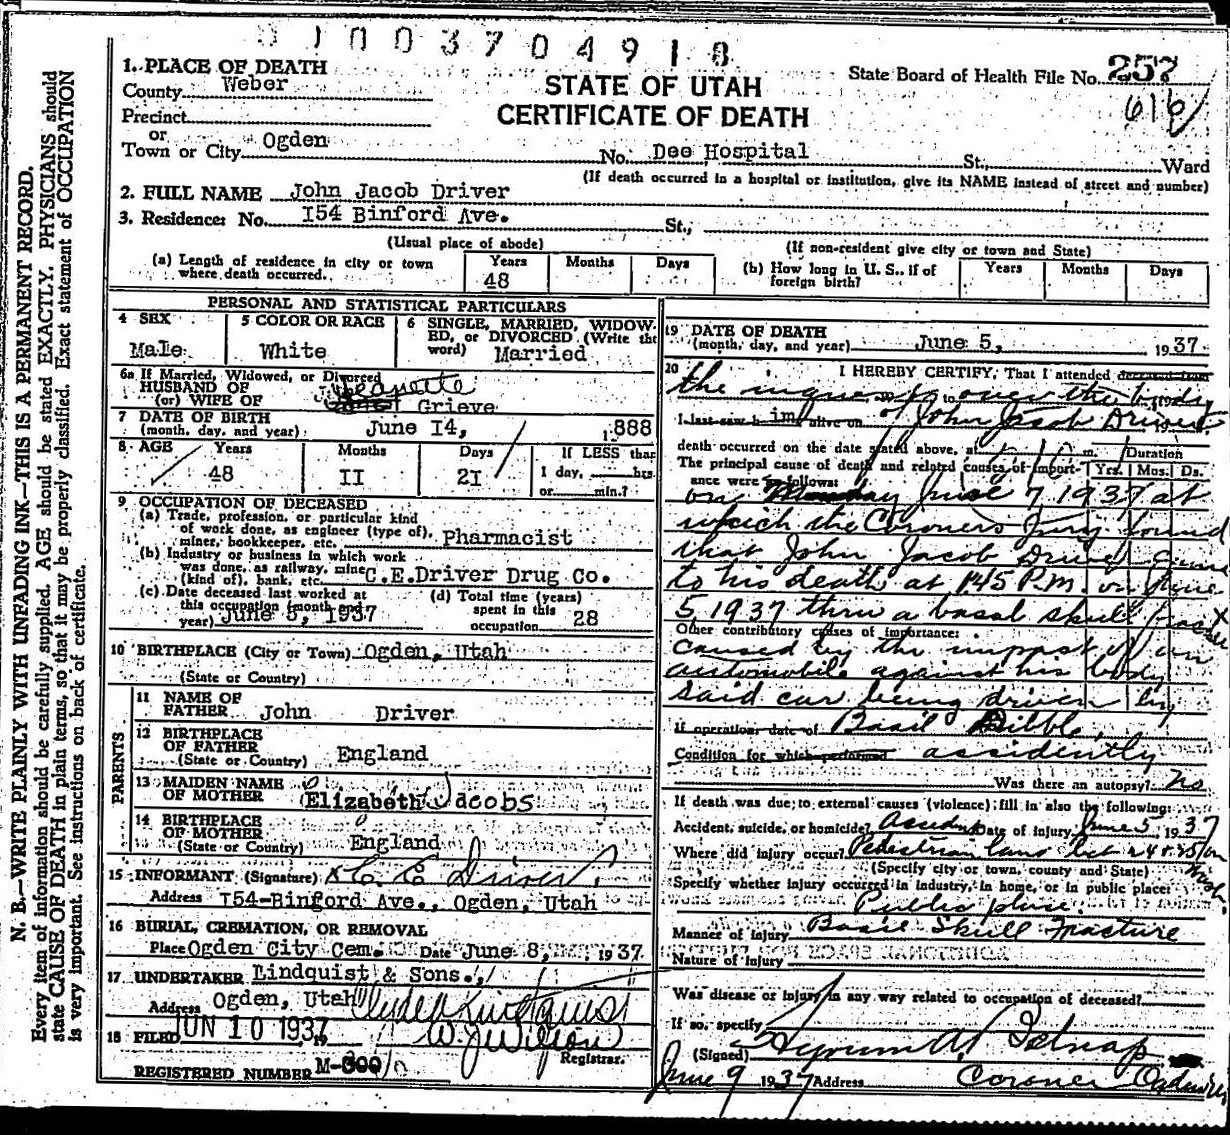 01003704918
1. PLACE OF DEATH
County Weber
STATE OF UTAH
CERTIFICATE OF DEATH
State Board of Health File No. 257
616
Precinct
or
Town or City Ogden No. Dee Hospital St., Ward
(If death occurred in a hospital or institution, give its NAME instead of street and number)
2. FULL NAME John Jacob Driver
3. Residence: No. I54 Binford Ave. St.,
(Usual place of abode) (If non-resident give city or town and State)
(a) Length of residence in city or town where death occurred. Years 48 Months Days
(b) How long in U. S., if of foreign birth? Years Months Days
PERSONAL AND STATISTICAL PARTICULARS
4 SEX Male
5 COLOR OR RACE White
6 SINGLE, MARRIED, WIDOWED, or DIVORCED (Write the word) Married
6a If Married, Widowed, or Divorced
HUSBAND OF
(or) WIFE OF Jeanette Grieve
7 DATE OF BIRTH
(month, day, and year) June I4, 1888
8 AGE Years 48 Months II Days 2I If LESS than 1 day, hrs. or min.?
9 OCCUPATION OF DECEASED
(a) Trade, profession, or particular kind of work done, as engineer (type of), miner, bookkeeper, etc. Pharmacist
(b) Industry or business in which work was done, as railway, mine (kind of), bank, etc. C.E.Driver Drug Co.
(c) Date deceased last worked at this occupation (month and year) June 5, 1937
(d) Total time (years) spent in this occupation 28
10 BIRTHPLACE (City or Town) Ogden, Utah
(State or Country)
PARENTS
11 NAME OF FATHER John Driver
12 BIRTHPLACE OF FATHER (State or Country) England
13 MAIDEN NAME OF MOTHER Elizabeth Jacobs
14 BIRTHPLACE OF MOTHER (State or Country) England
15 INFORMANT (Signature) C E Driver
Address I54-Binford Ave., Ogden, Utah
16 BURIAL, CREMATION, OR REMOVAL
Place Ogden City Cem. Date June 8, 1937
17 UNDERTAKER Lindquist & Sons.,
Address Ogden, Utah Clyde Lindquist
18 FILED JUN 10 1937 W. J. Wilson
Registrar.
REGISTERED NUMBER M-300
19 DATE OF DEATH
(month, day, and year) June 5, 1937
20 I HEREBY CERTIFY, That I attended deceased from
the inquest to over the body
I last saw h im alive on of John Jacob Driver
death occurred on the date stated above, at m. Duration
The principal cause of death and related causes of importance were as follows: Yrs. Mos. Ds.
on Monday June 7 1937 at
which the Coroners Jury found
that John Jacob Driver came
to his death at 1:45 P.M. on June
5 1937 thru a basal skull fracture
Other contributory causes of importance:
caused by the impact of an
automobile against his body
said car being driven by
If operation, date of Basil Dibble
Condition for which performed assidently
Was there an autopsy? no
If death was due to external causes (violence) fill in also the following:
Accident, suicide, or homicide? Accident Date of injury June 5 1937
Where did injury occur? Pedestrian lane bet 24 & 25 on Wash.
(Specify city or town, county and State)
Specify whether injury occurred in industry, in home, or in public place:
Public place.
Manner of injury Basil Skull Fracture
Nature of injury
Was disease or injury in any way related to occupation of deceased?
If so, specify
(Signed) Hyrum A. Belnap
June 9 1937 Address Coroner Ogden
N. B.—WRITE PLAINLY WITH UNFADING INK—THIS IS A PERMANENT RECORD.
Every item of information should be carefully supplied. AGE should be stated EXACTLY. PHYSICIANS should
state CAUSE OF DEATH in plain terms, so that it may be properly classified. Exact statement of OCCUPATION
is very important. See instructions on back of certificate.